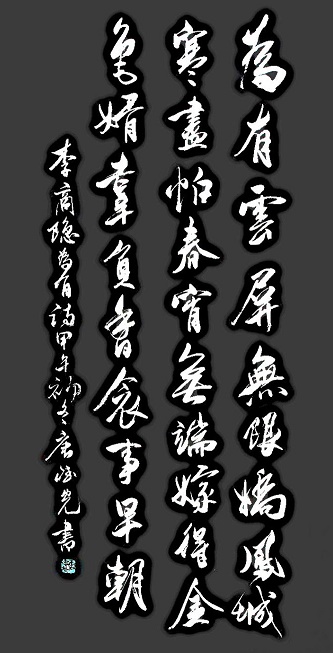 為有雲屏無限嬌鳳城
寒盡怕春宵無端嫁得金
龜婿辜負香衾事早朝
李商隱為有詩甲午初冬唐書